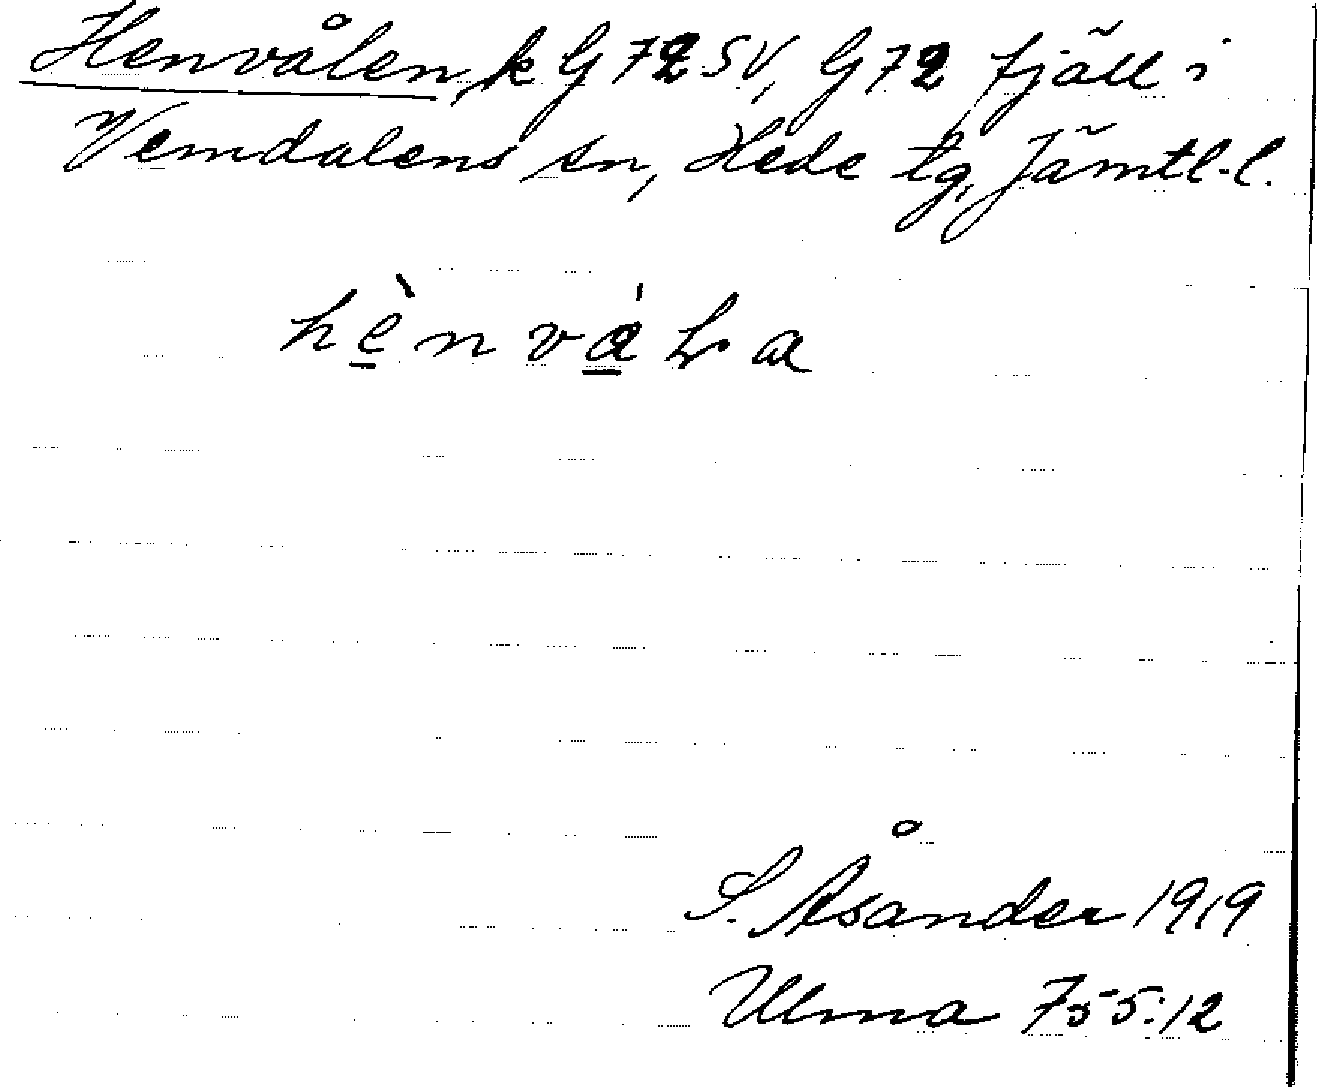 Henvålen, k G 72 SV, G 72 fjäll i
Vemdalens sn, Hede tg, Jämtl. l.
S. Åsander 1919
Ulma 755:12